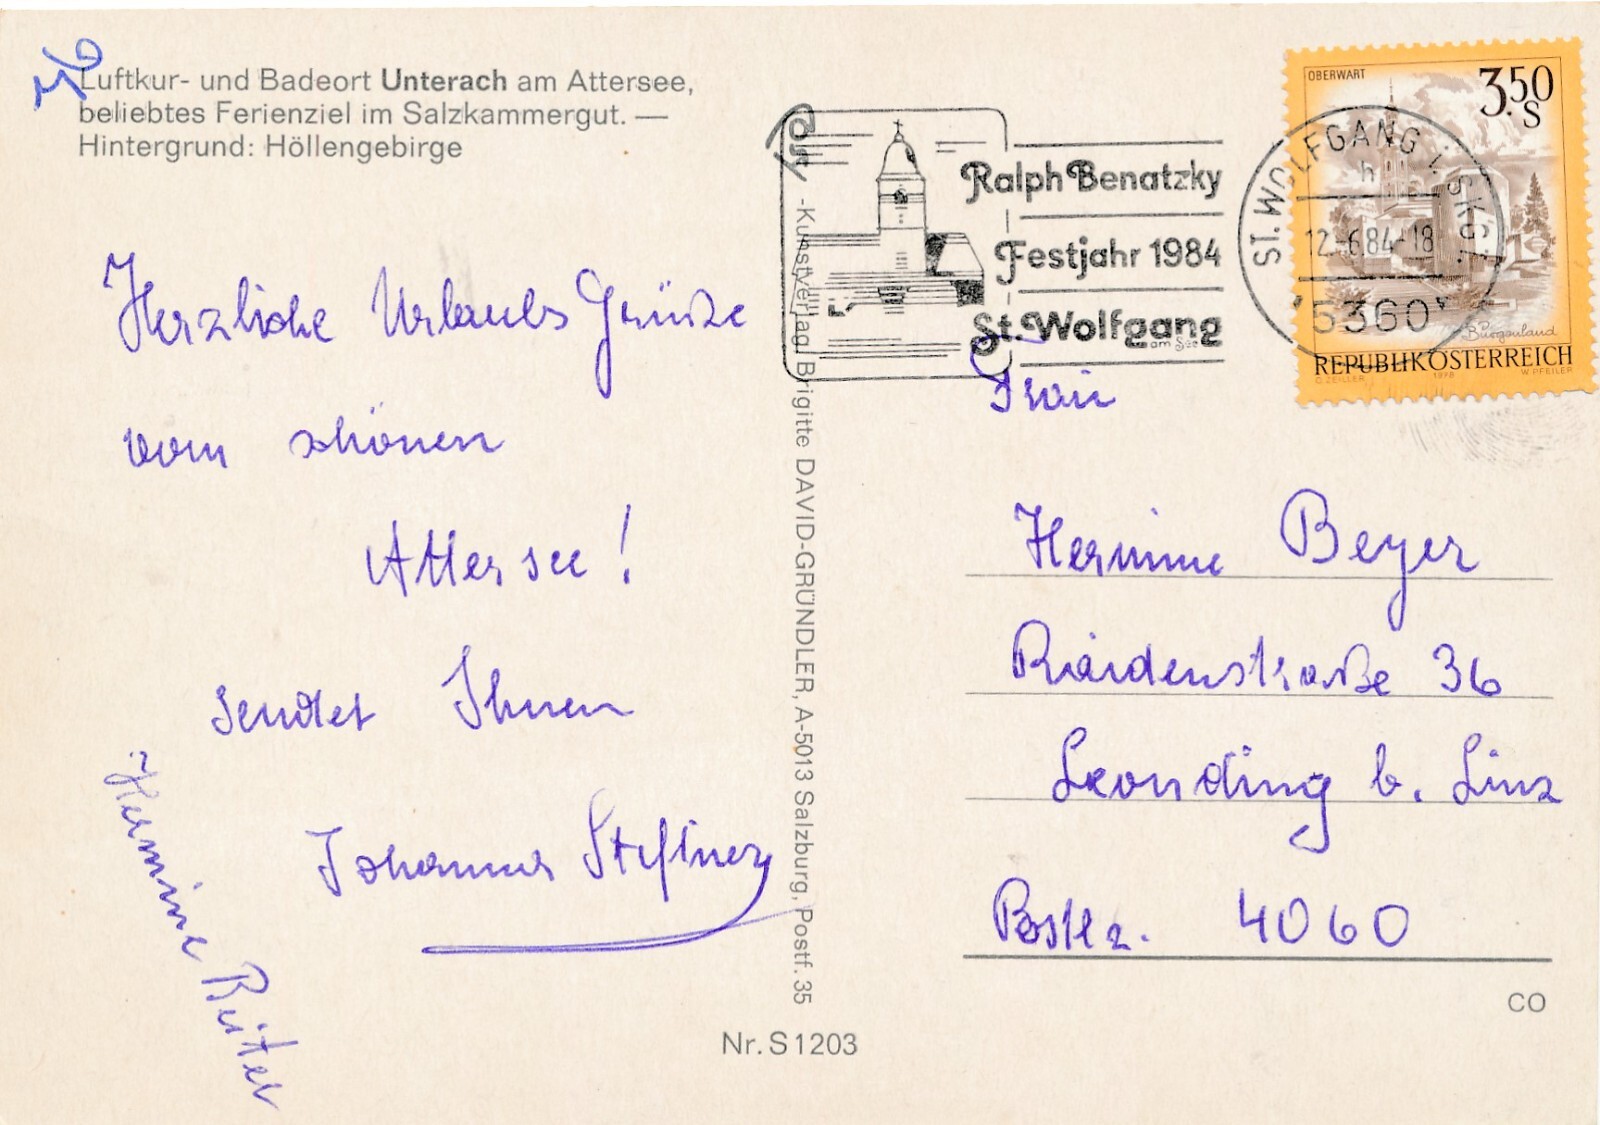 Luftkur- und Badeort Unterach am Attersee,
beliebtes Ferienziel im Salzkammergut. —
Hintergrund: Höllengebirge
Herzliche Urlaubs Grüße
vom schönen
Attersee!
sendet Ihnen
Johannes
Hermine
-Kunstverlag Brigitte DAVID-GRÜNDLER, A-5013 Salzburg, Postf. 35
Nr. S 1203
Post
Ralph Benatzky
Festjahr 1984
St. Wolfgang
am See
ST. WOLFGANG I. SKG.
h
12.-6.84-18
5360
OBERWART
3.50
S
Burgenland
REPUBLIK ÖSTERREICH
O. ZEILLER 1978 W. PFEILER
Frau
Hermine Beyer
36
Leonding b. Linz
Postlz. 4060
CO